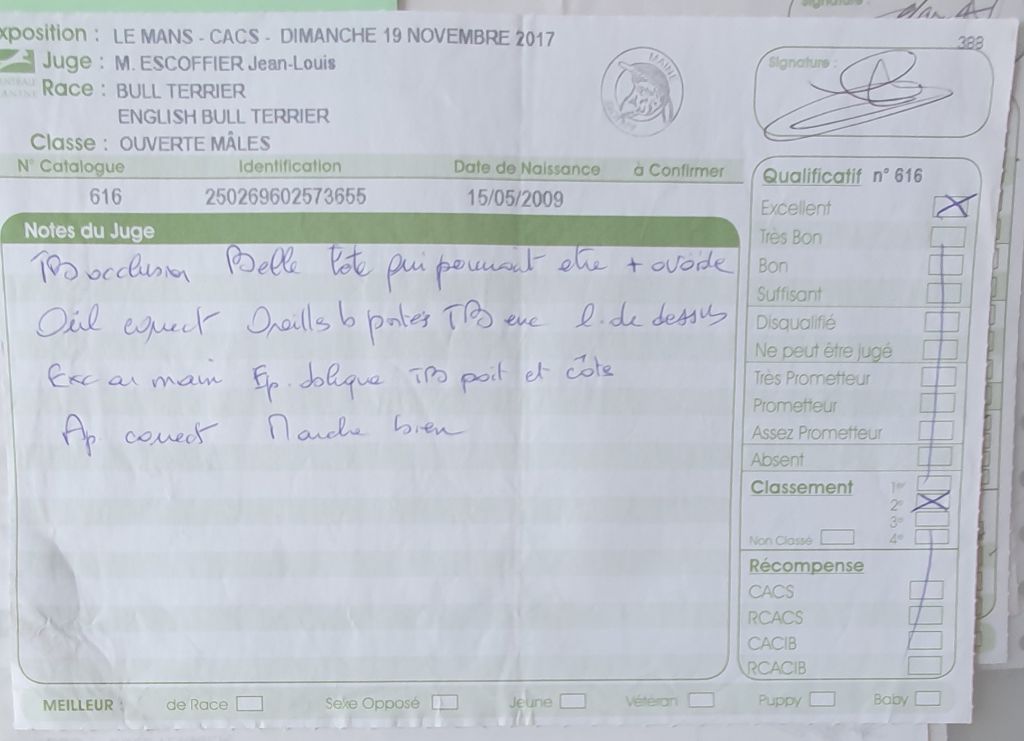 xposition : LE MANS - CACS - DIMANCHE 19 NOVEMBRE 2017
388
Juge : M. ESCOFFIER Jean-Louis
Race : BULL TERRIER
ENGLISH BULL TERRIER
Classe : OUVERTE MÂLES
MAINE
Signature :
N° Catalogue Identification Date de Naissance à Confirmer
616 250269602573655 15/05/2009
Notes du Juge
TB occlusion Belle tête qui pourrait etre + ovoïde
Oeil correct Oreilles b portés TB enc l. de dessus
Exc au main Ep. oblique TB poit et côte
Ap. correct Marche bien
Qualificatif n° 616
Excellent
Très Bon
Bon
Suffisant
Disqualifié
Ne peut être jugé
Très Prometteur
Prometteur
Assez Prometteur
Absent
Classement 1er
2e
3e
Non Classé 4e
Récompense
CACS
RCACS
CACIB
RCACIB
MEILLEUR : de Race Sexe Opposé Jeune Vétéran Puppy Baby